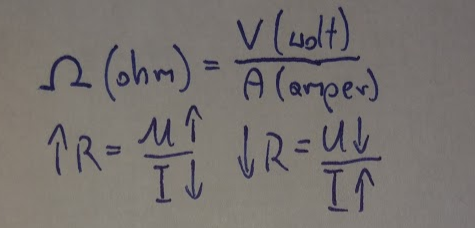 Ω (ohm) = V (volt) / A (amper)
↑R = U↑ / I↓ ↓R = U↓ / I↑